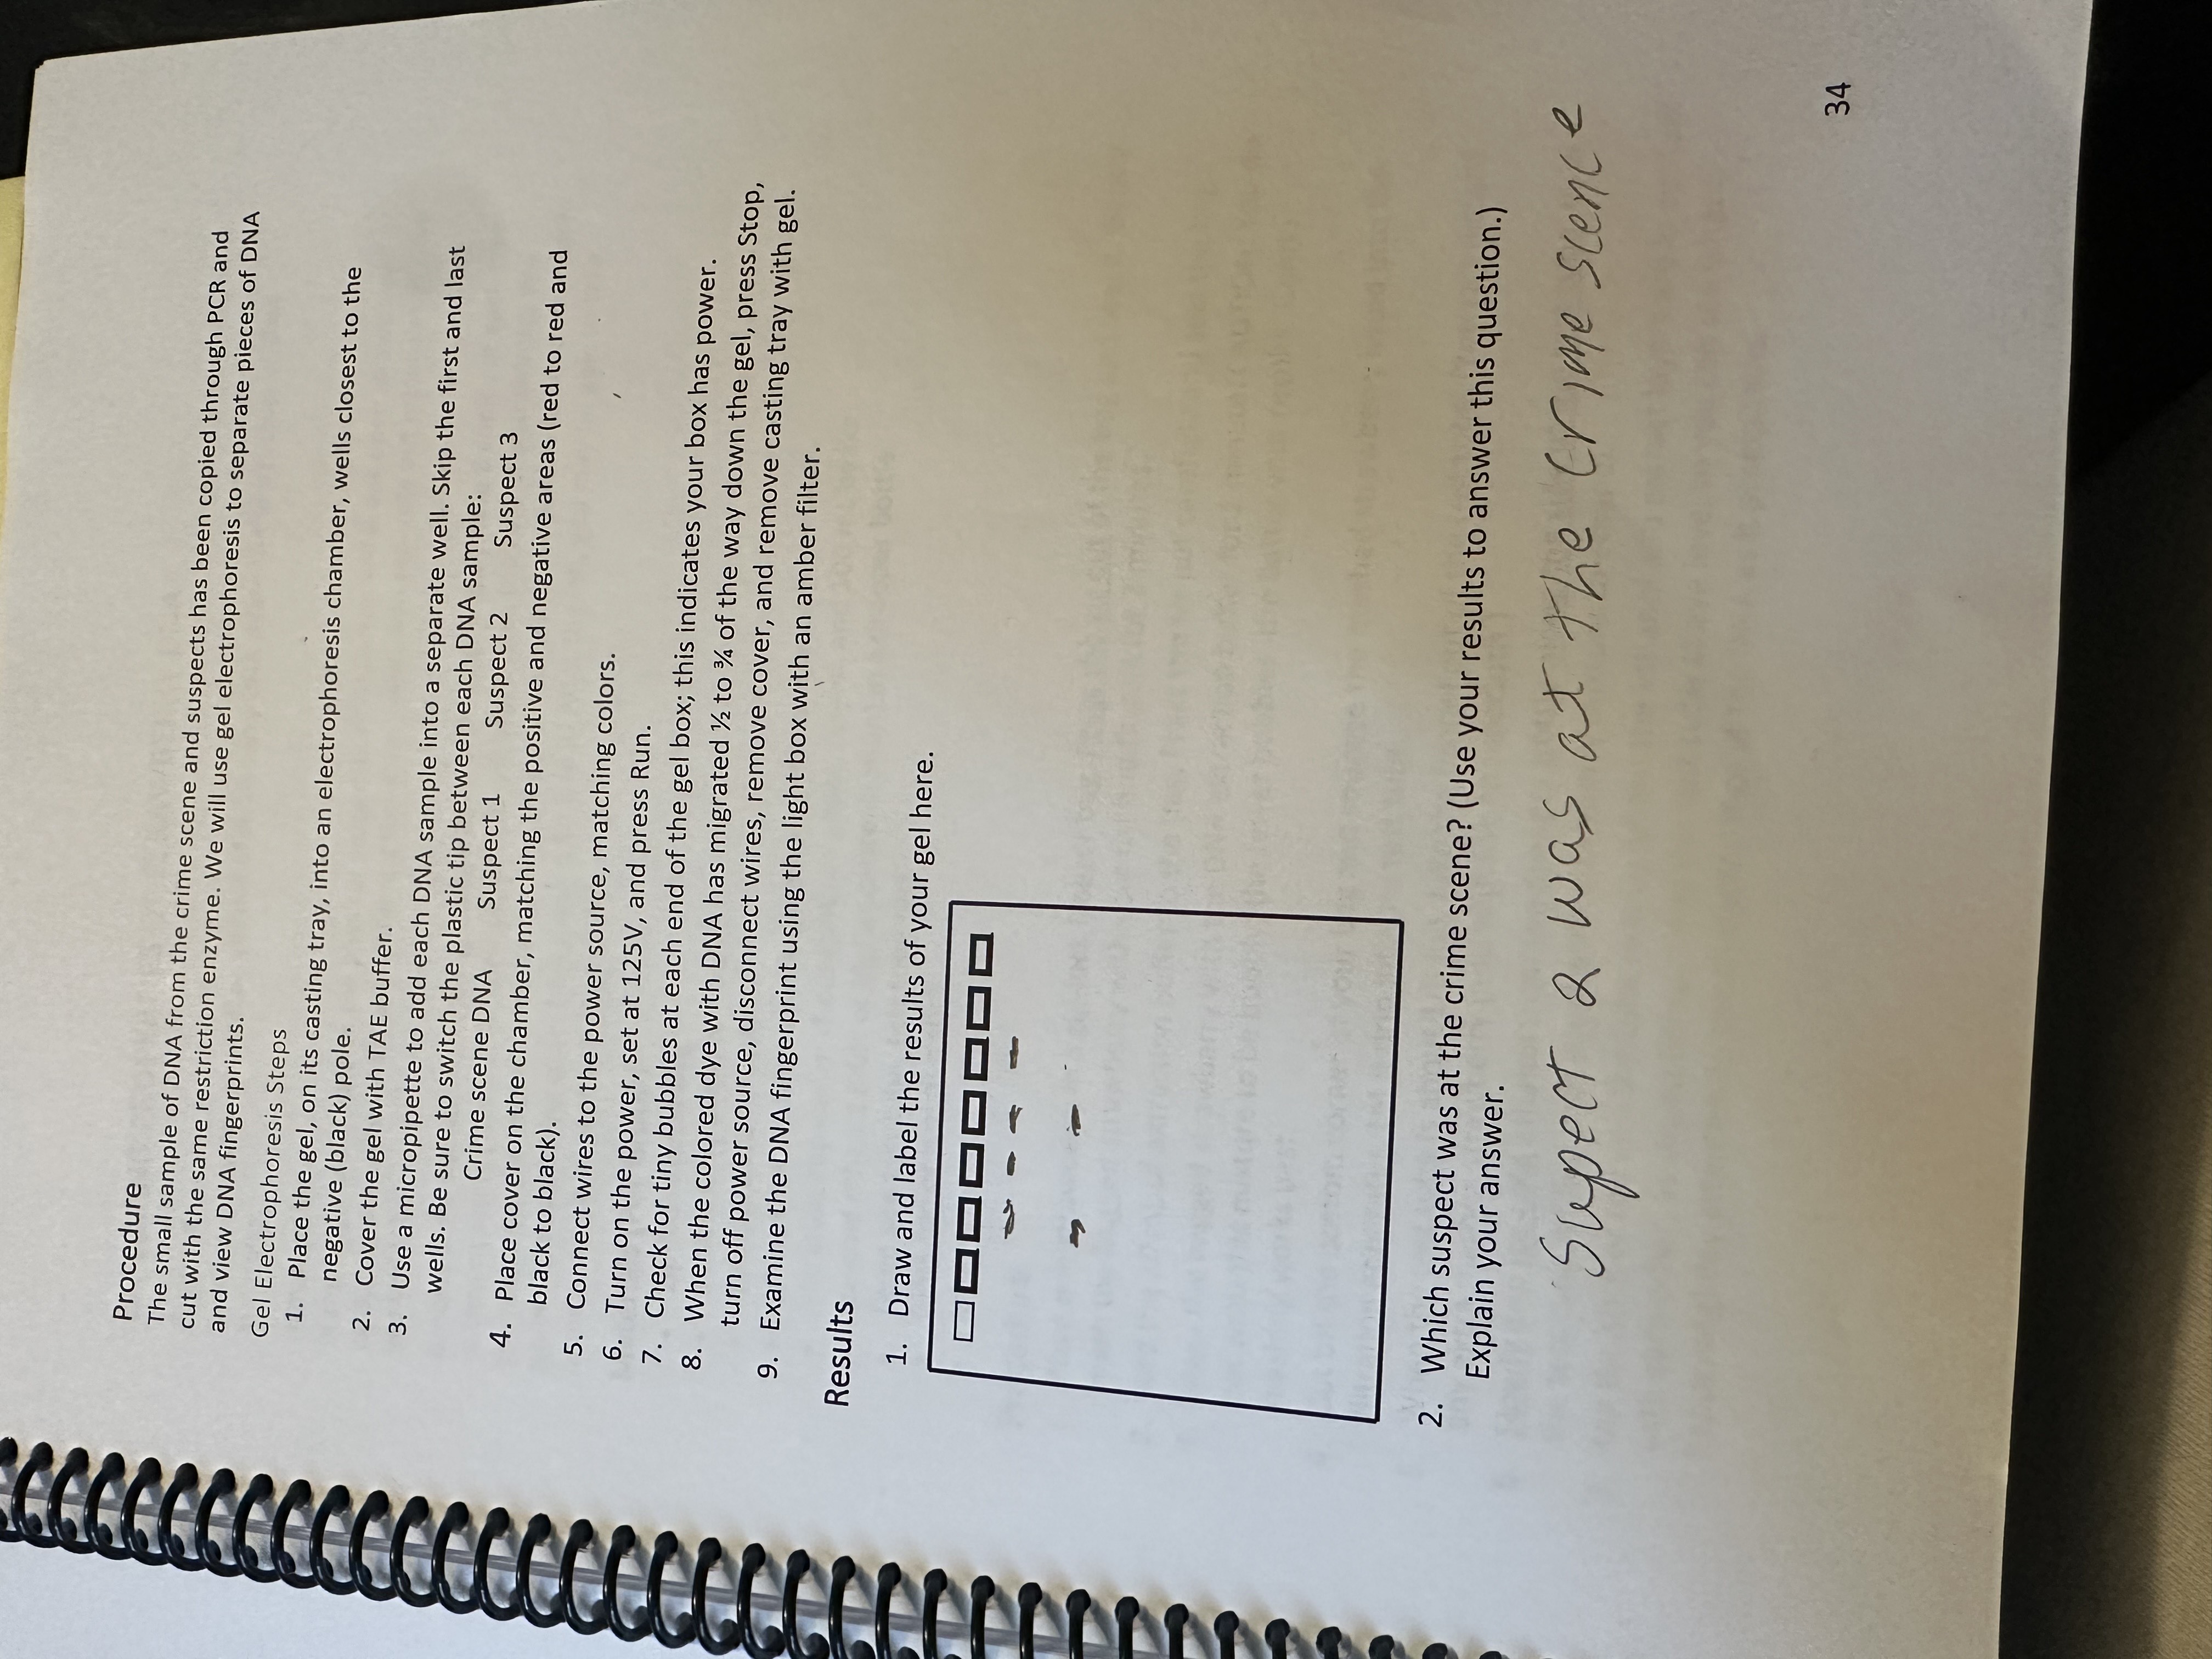 Procedure
The small sample of DNA from the crime scene and suspects has been copied through PCR and
cut with the same restriction enzyme. We will use gel electrophoresis to separate pieces of DNA
and view DNA fingerprints.
Gel Electrophoresis Steps
1. Place the gel, on its casting tray, into an electrophoresis chamber, wells closest to the
negative (black) pole.
2. Cover the gel with TAE buffer.
3. Use a micropipette to add each DNA sample into a separate well. Skip the first and last
wells. Be sure to switch the plastic tip between each DNA sample:
Crime scene DNA Suspect 1 Suspect 2 Suspect 3
4. Place cover on the chamber, matching the positive and negative areas (red to red and
black to black).
5. Connect wires to the power source, matching colors.
6. Turn on the power, set at 125V, and press Run.
7. Check for tiny bubbles at each end of the gel box; this indicates your box has power.
8. When the colored dye with DNA has migrated ½ to ¾ of the way down the gel, press Stop,
turn off power source, disconnect wires, remove cover, and remove casting tray with gel.
9. Examine the DNA fingerprint using the light box with an amber filter.
Results
1. Draw and label the results of your gel here.
2. Which suspect was at the crime scene? (Use your results to answer this question.)
Explain your answer.
Supect 2 was at the Crime scence
34